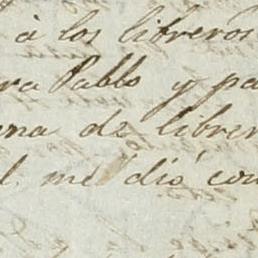 à los libreros
ra Pablo y pa
ena de librer
l. me dió con